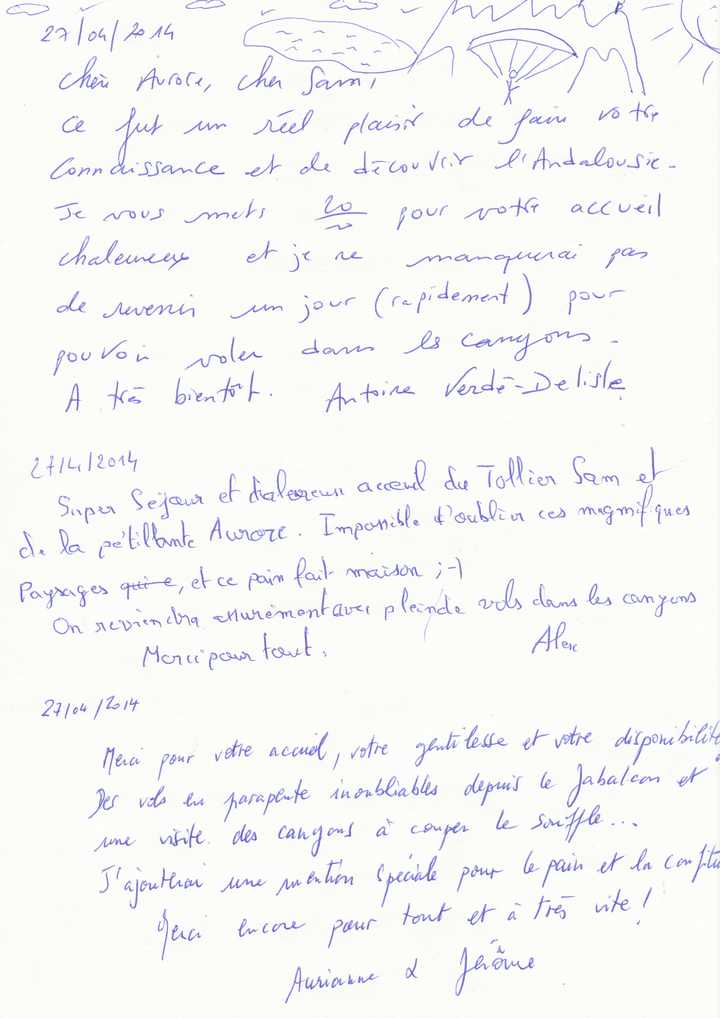 27/04/2014
Chère Aurore, cher Sam,
ce fut un réel plaisir de faire votre
connaissance et de découvrir l'Andalousie.
Je vous mets 20 pour votre accueil
chaleureux et je ne manquerai pas
de revenir un jour (rapidement) pour
pouvoir voler dans les canyons.
A très bientôt. Antoine Verdé-Delisle
27/4/2014
Super Séjour et chaleureux accueil du Tollier Sam et
de la pétillante Aurore. Impossible d'oublier ces magnifiques
Paysages qui e, et ce pain fait maison ;-)
On reviendra assurément avec plein de vols dans les canyons
Merci pour tout, Alex
27/04/2014
Merci pour votre accueil, votre gentillesse et votre disponibilité
Des vols en parapente inoubliables depuis le Jabalcon et
une visite des canyons à couper le souffle...
J'ajouterai une mention spéciale pour le pain et la confitu
Merci encore pour tout et à très vite !
Aurianne & Jérôme